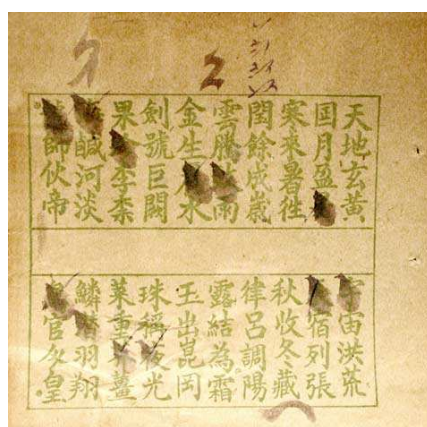 天地玄黃
囯月盈
寒來暑徃
閏餘成歲
雲騰雨
金生水
劍號巨闕
果李柰
鹹河淡
師伙帝
宙洪荒
宿列張
秋收冬藏
律呂調陽
露結為霜
玉出崑岡
珠稱夜光
菜重芥薑
鱗潛羽翔
官皇